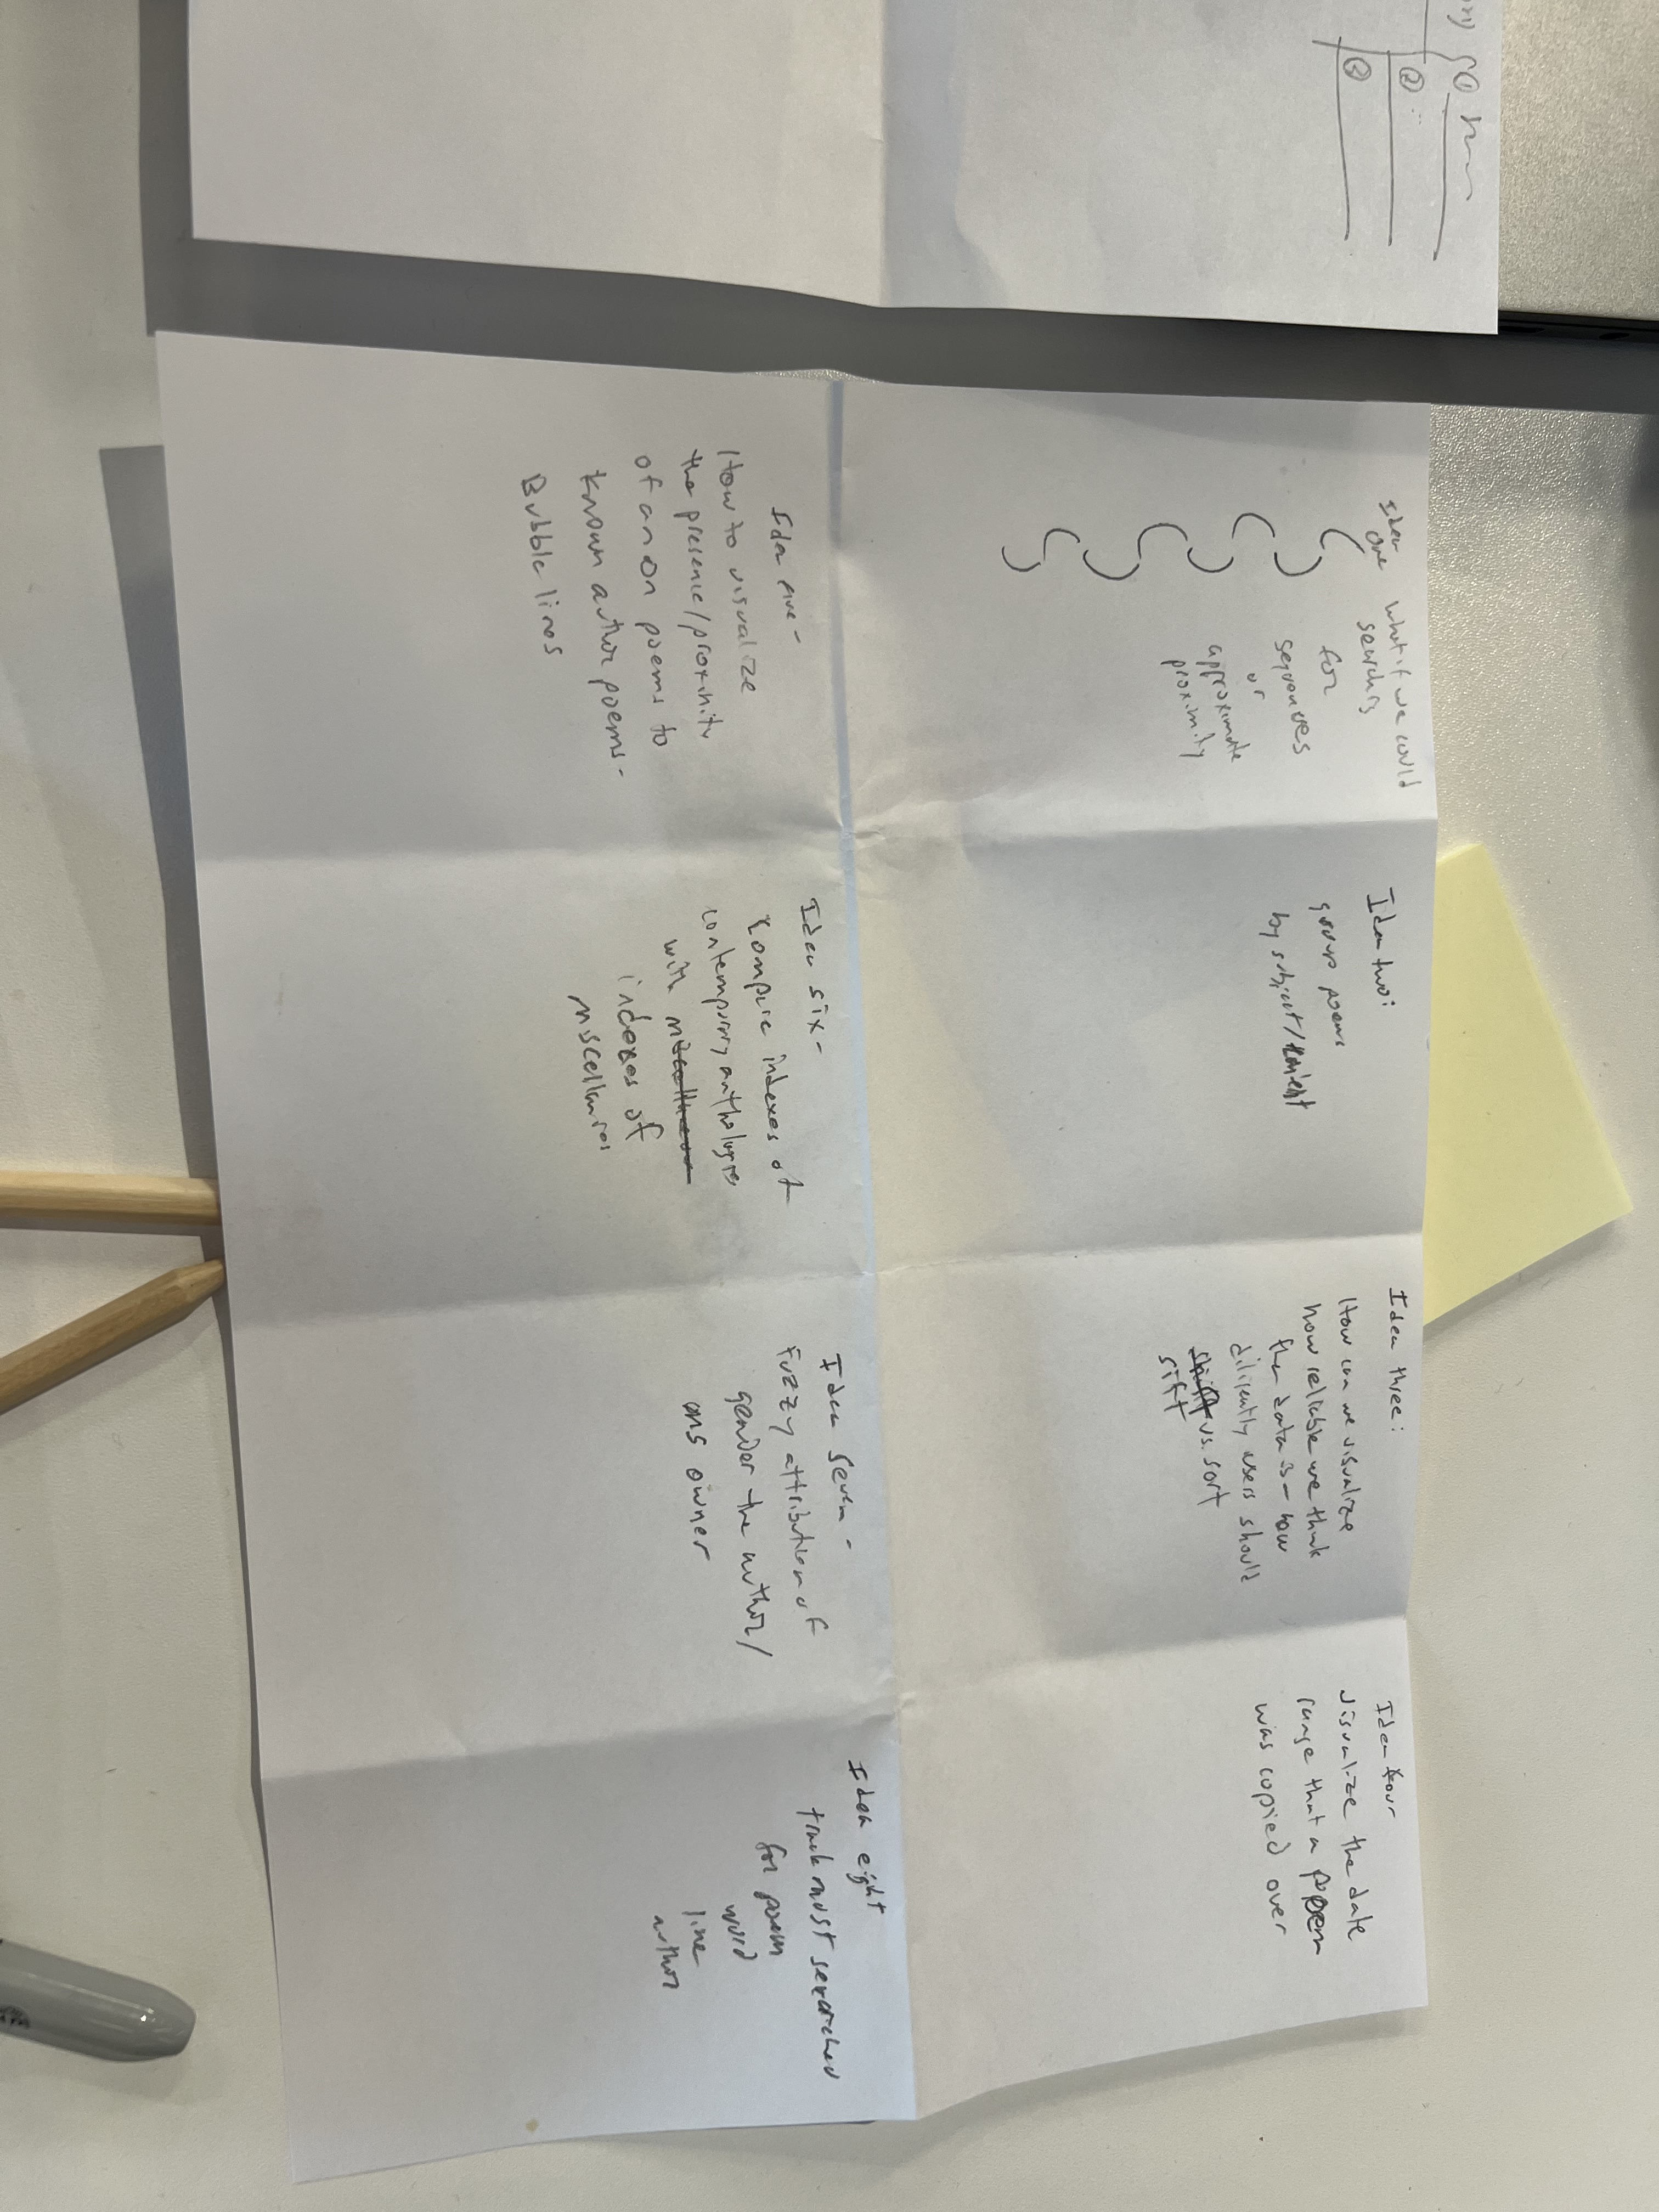 Idea
one
what if we could
searches
for
sequences
or
approximate
proximity
Idea two:
group poems
by subject/content
Idea three:
How can we visualize
how reliable we think
the data is - how
diligently users should
shift vs. sort
sift
Idea four
visualize the date
range that a poem
was copied over
Idea five -
How to visualize
the presence/proximity
of anon poems to
known author poems -
Bubble lines
Idea six -
compare indexes of
contemporary anthologies
with
indexes of
miscellanies
Idea seven -
fuzzy attribution of
gender the author/
ms owner
Idea eight
track most searched
for poem
word
line
author
①
②
③